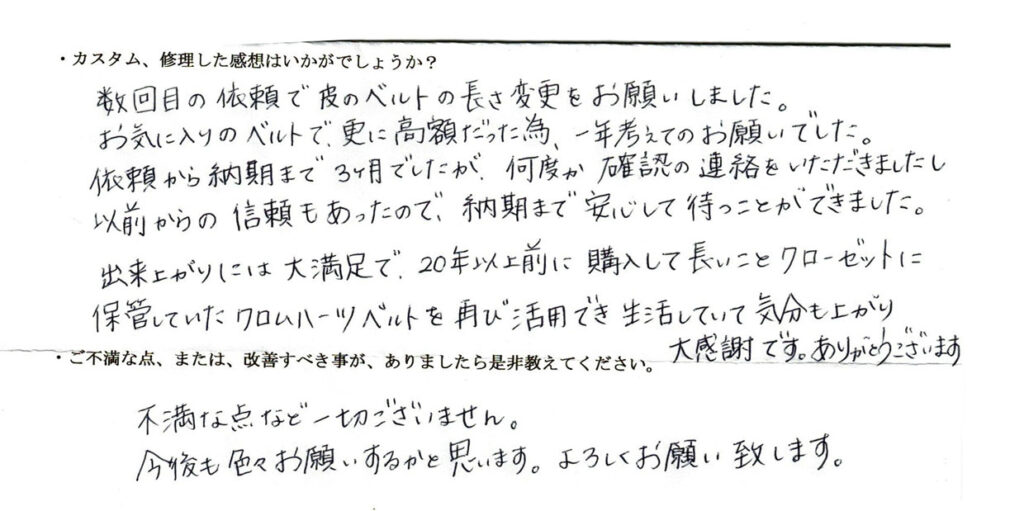 ・カスタム、修理した感想はいかがでしょうか？
数回目の依頼で皮のベルトの長さ変更をお願いしました。
お気に入りのベルトで、更に高額だった為、一年考えてのお願いでした。
依頼から納期まで3ヶ月でしたが、何度か確認の連絡をいただきましたし
以前からの信頼もあったので、納期まで安心して待つことができました。
出来上がりには大満足で、20年以上前に購入して長いことクローゼットに
保管していたクロムハーツベルトを再び活用でき生活していて気分も上がり
大感謝です。ありがとうございます
・ご不満な点、または、改善すべき事が、ありましたら是非教えてください。
不満な点など一切ございません。
今後も色々お願いするかと思います。よろしくお願い致します。